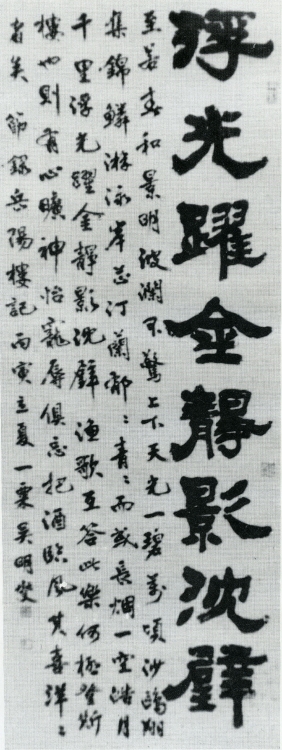 浮光躍金靜影沈璧
至若春和景明波瀾不驚上下天光一碧萬頃沙鷗翔
集錦鱗游泳岸芷汀蘭郁〻青〻而或長煙一空浩月
千里浮光躍金靜影沈璧漁歌互答此樂何極登斯
樓也則有心曠神怡寵辱俱忘把酒臨風其喜洋〻
者矣 節錄岳陽樓記 丙寅立夏 一粟吳明燮